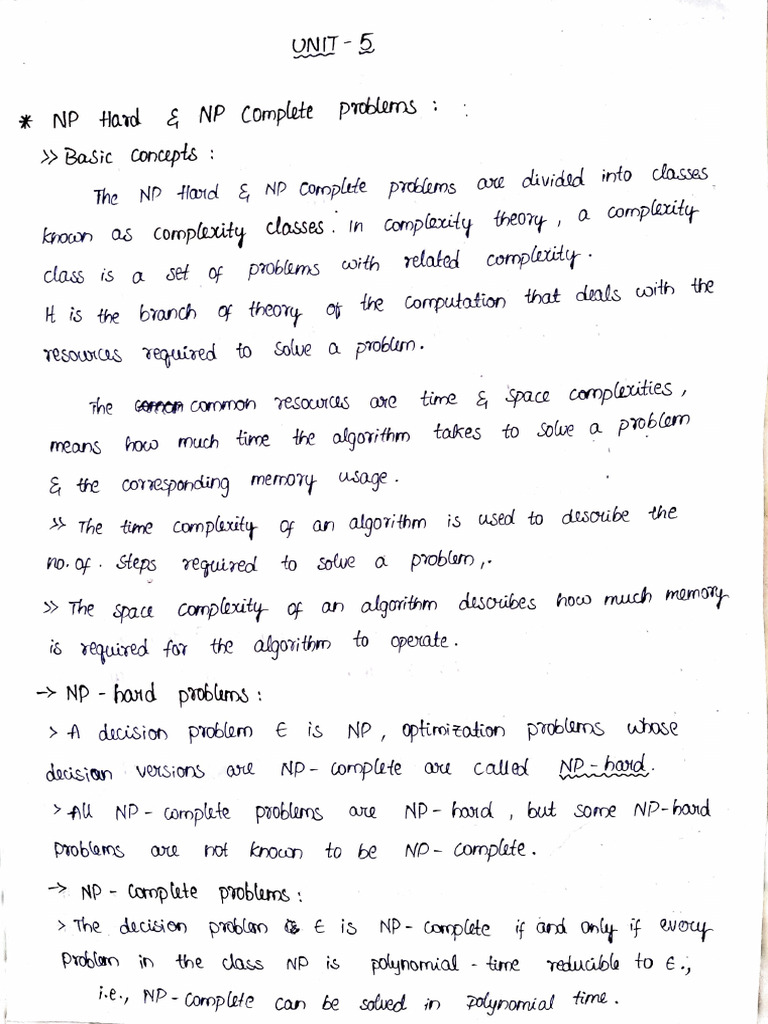 UNIT - 5
* NP Hard & NP Complete problems :
>> Basic concepts :
The NP Hard & NP Complete problems are divided into classes
known as complexity classes. In complexity theory, a complexity
class is a set of problems with related complexity.
It is the branch of theory of the computation that deals with the
resources required to solve a problem.
The common resources are time & space complexities,
means how much time the algorithm takes to solve a problem
& the corresponding memory usage.
>> The time complexity of an algorithm is used to describe the
no. of. steps required to solve a problem,.
>> The space complexity of an algorithm describes how much memory
is required for the algorithm to operate.
-> NP - hard problems :
> A decision problem E is NP, optimization problems whose
decision versions are NP - complete are called NP - hard.
> All NP - complete problems are NP - hard, but some NP-hard
problems are not known to be NP - complete.
-> NP - complete problems :
> The decision problem E is NP - complete if and only if every
problem in the class NP is polynomial - time reducible to E.,
i.e., NP - complete can be solved in polynomial time.